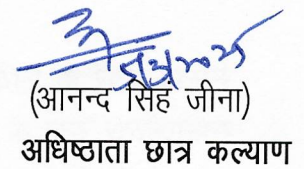 (आनन्द सिंह जीना)
अधिष्ठाता छात्र कल्याण